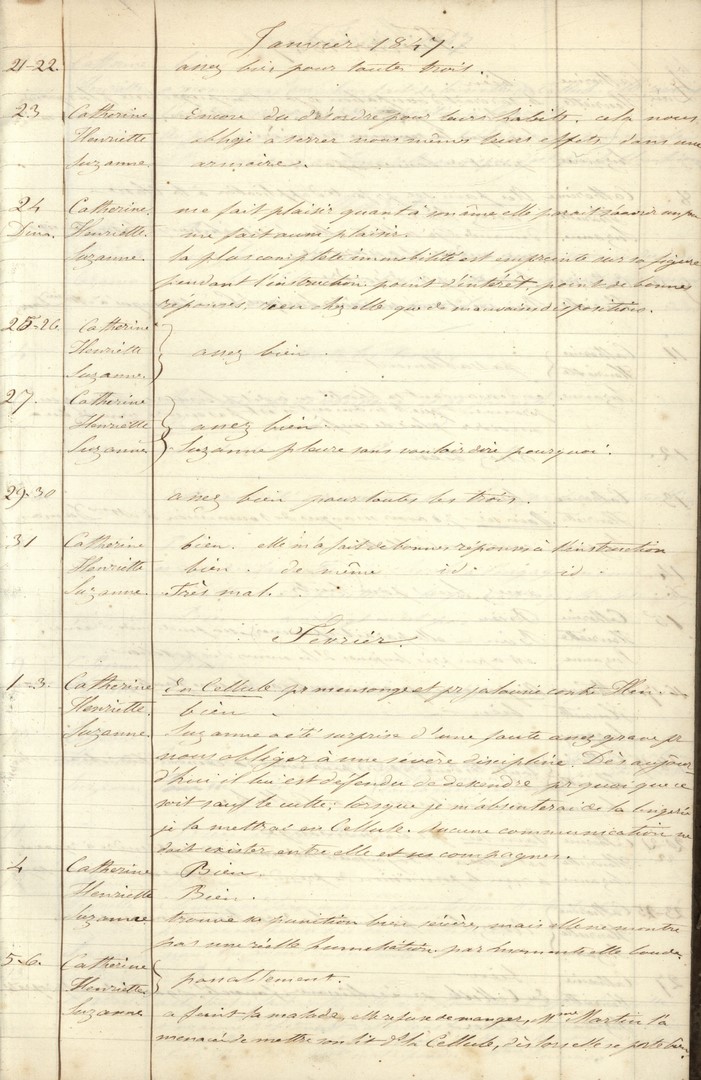 Janvier 1847.
21-22. assez bien pour toutes trois.
23 Catherine Encore du désordre pour leurs habits. cela nous
Henriette oblige à serrer nous mêmes leurs effets dans une
Suzanne armoire.
24 Catherine. me fait plaisir quant à elle paraît
Dim. Henriette. me fait aussi plaisir.
Suzanne. la plus complète immobilité est empreinte sur sa figure
pendant l'instruction point d'intérêt point de bonnes
réponses. rien chez elle que de mauvaises dispositions.
25-26. Catherine
Henriette assez bien.
Suzanne.
27. Catherine
Henriette assez bien.
Suzanne Suzanne pleure sans vouloir dire pourquoi.
29-30 assez bien pour toutes les trois.
31 Catherine bien. elle m'a fait de bonnes réponses à l'instruction
Henriette bien. de même id. id.
Suzanne. Très mal.
Février.
1-3. Catherine En Cellule pr mensonge et pr jalousie contre Hen.
Henriette. bien.
Suzanne Suzanne a été surprise d'une faute assez grave pr
nous obliger à une sévère discipline. Dès aujour-
d'hui il lui est défendu de descendre pr quoi que ce
soit sauf le culte; lorsque je m'absenterai de la lingerie
je la mettrai en Cellule. Aucune communication ne
doit exister entre elle et ses compagnes.
4 Catherine Bien.
Henriette Bien.
Suzanne trouve sa punition bien sévère, mais elle ne montre
pas une réelle humiliation. par moments elle boude.
5-6. Catherine
Henriette. passablement.
Suzanne a feint la malade, elle refuse de manger, Mme Martin l'a
menacée de mettre son lit ds la Cellule, dès lors elle se porte bien.